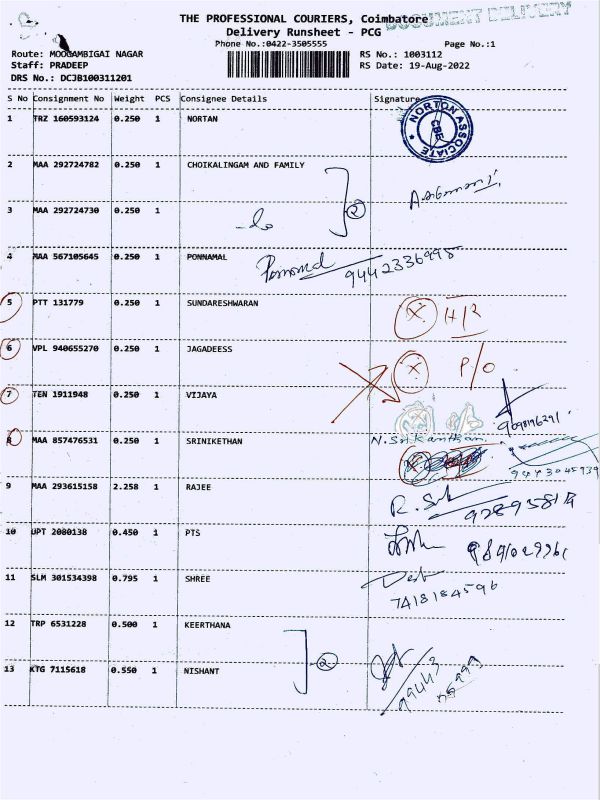 THE PROFESSIONAL COURIERS, Coimbatore
DOCUMENT DELIVERY
Delivery Runsheet - PCG
Phone No.:0422-3505555
Page No.:1
Route: MOOGAMBIGAI NAGAR
RS No.: 1003112
Staff: PRADEEP
RS Date: 19-Aug-2022
DRS No.: DCJB100311201
S No Consignment No Weight PCS Consignee Details Signature
1 TRZ 160593124 0.250 1 NORTAN
NORTON ASSOCIATE CBE
2 MAA 292724782 0.250 1 CHOIKALINGAM AND FAMILY
2
3 MAA 292724730 0.250 1
4 MAA 567105645 0.250 1 PONNAMAL
9442336995
5 PTT 131779 0.250 1 SUNDARESHWARAN
X H/R
6 VPL 940655270 0.250 1 JAGADEESS
X P/O
7 TEN 1911948 0.250 1 VIJAYA
8 MAA 857476531 0.250 1 SRINIKETHAN
N. Srikanthan.
9443045939
9 MAA 293615158 2.258 1 RAJEE
10 UPT 2080138 0.450 1 PTS
11 SLM 301534398 0.795 1 SHREE
7418184596
12 TRP 6531228 0.500 1 KEERTHANA
2
13 KTG 7115618 0.550 1 NISHANT
99443